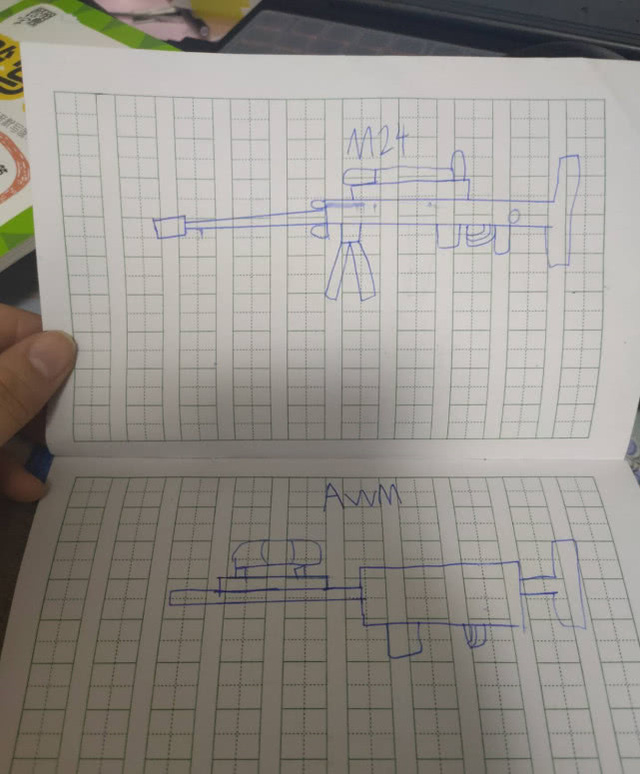 M24
AWM